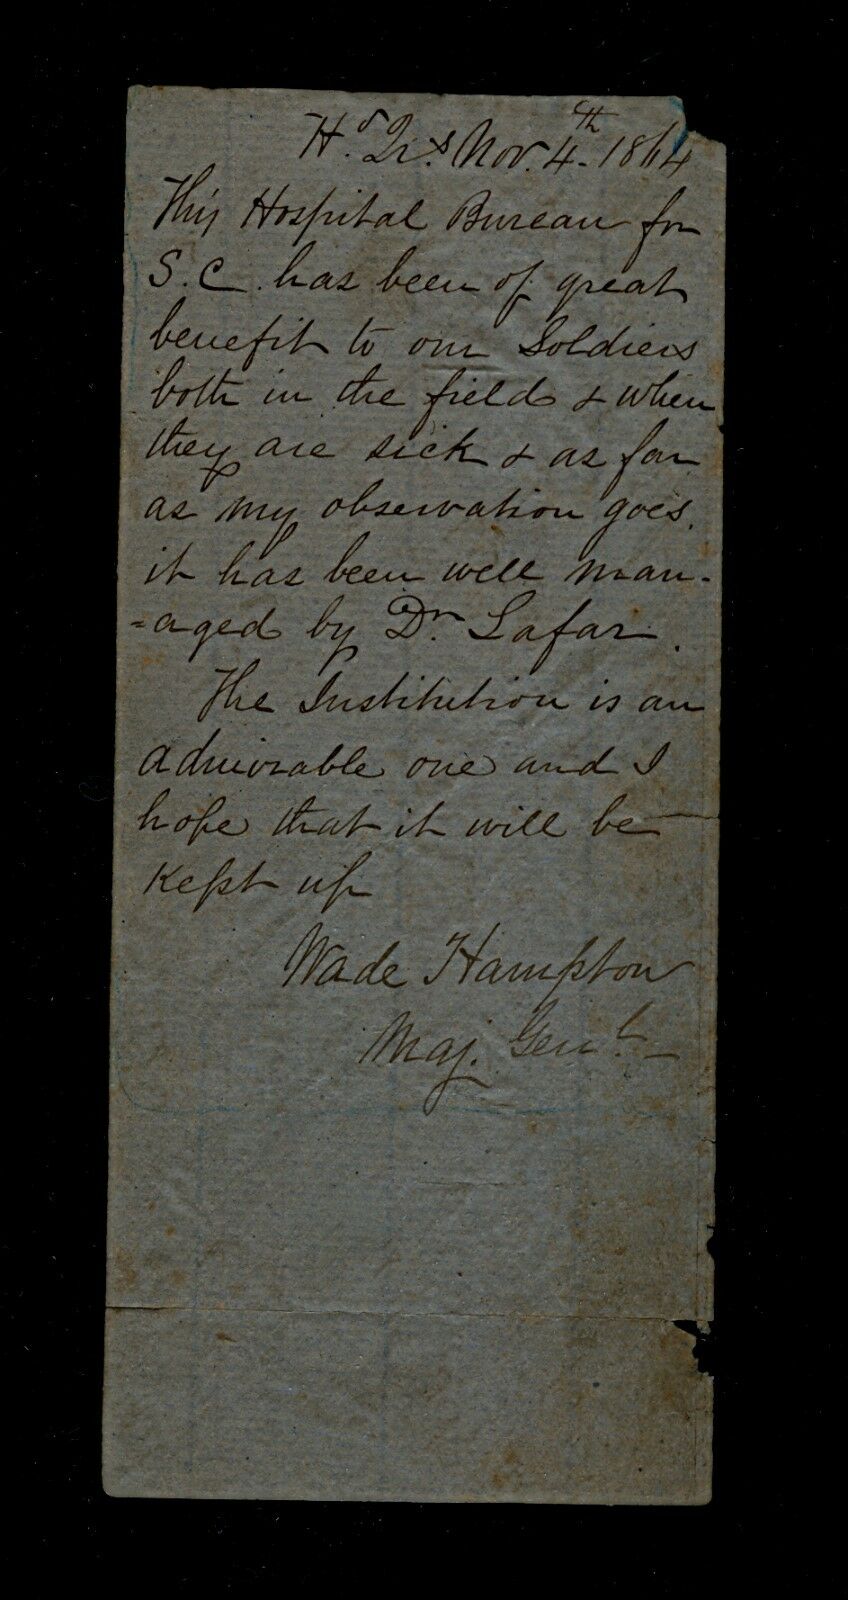 Hd. Qrs. Nov. 4th 1864
This Hospital Bureau for
S.C. has been of great
benefit to our Soldiers
both in the field & when
they are sick & as far
as my observation goes,
it has been well man-
=aged by Dr. Lafar.
The Institution is an
admirable one and I
hope that it will be
Kept up
Wade Hampton
Maj. Genl.